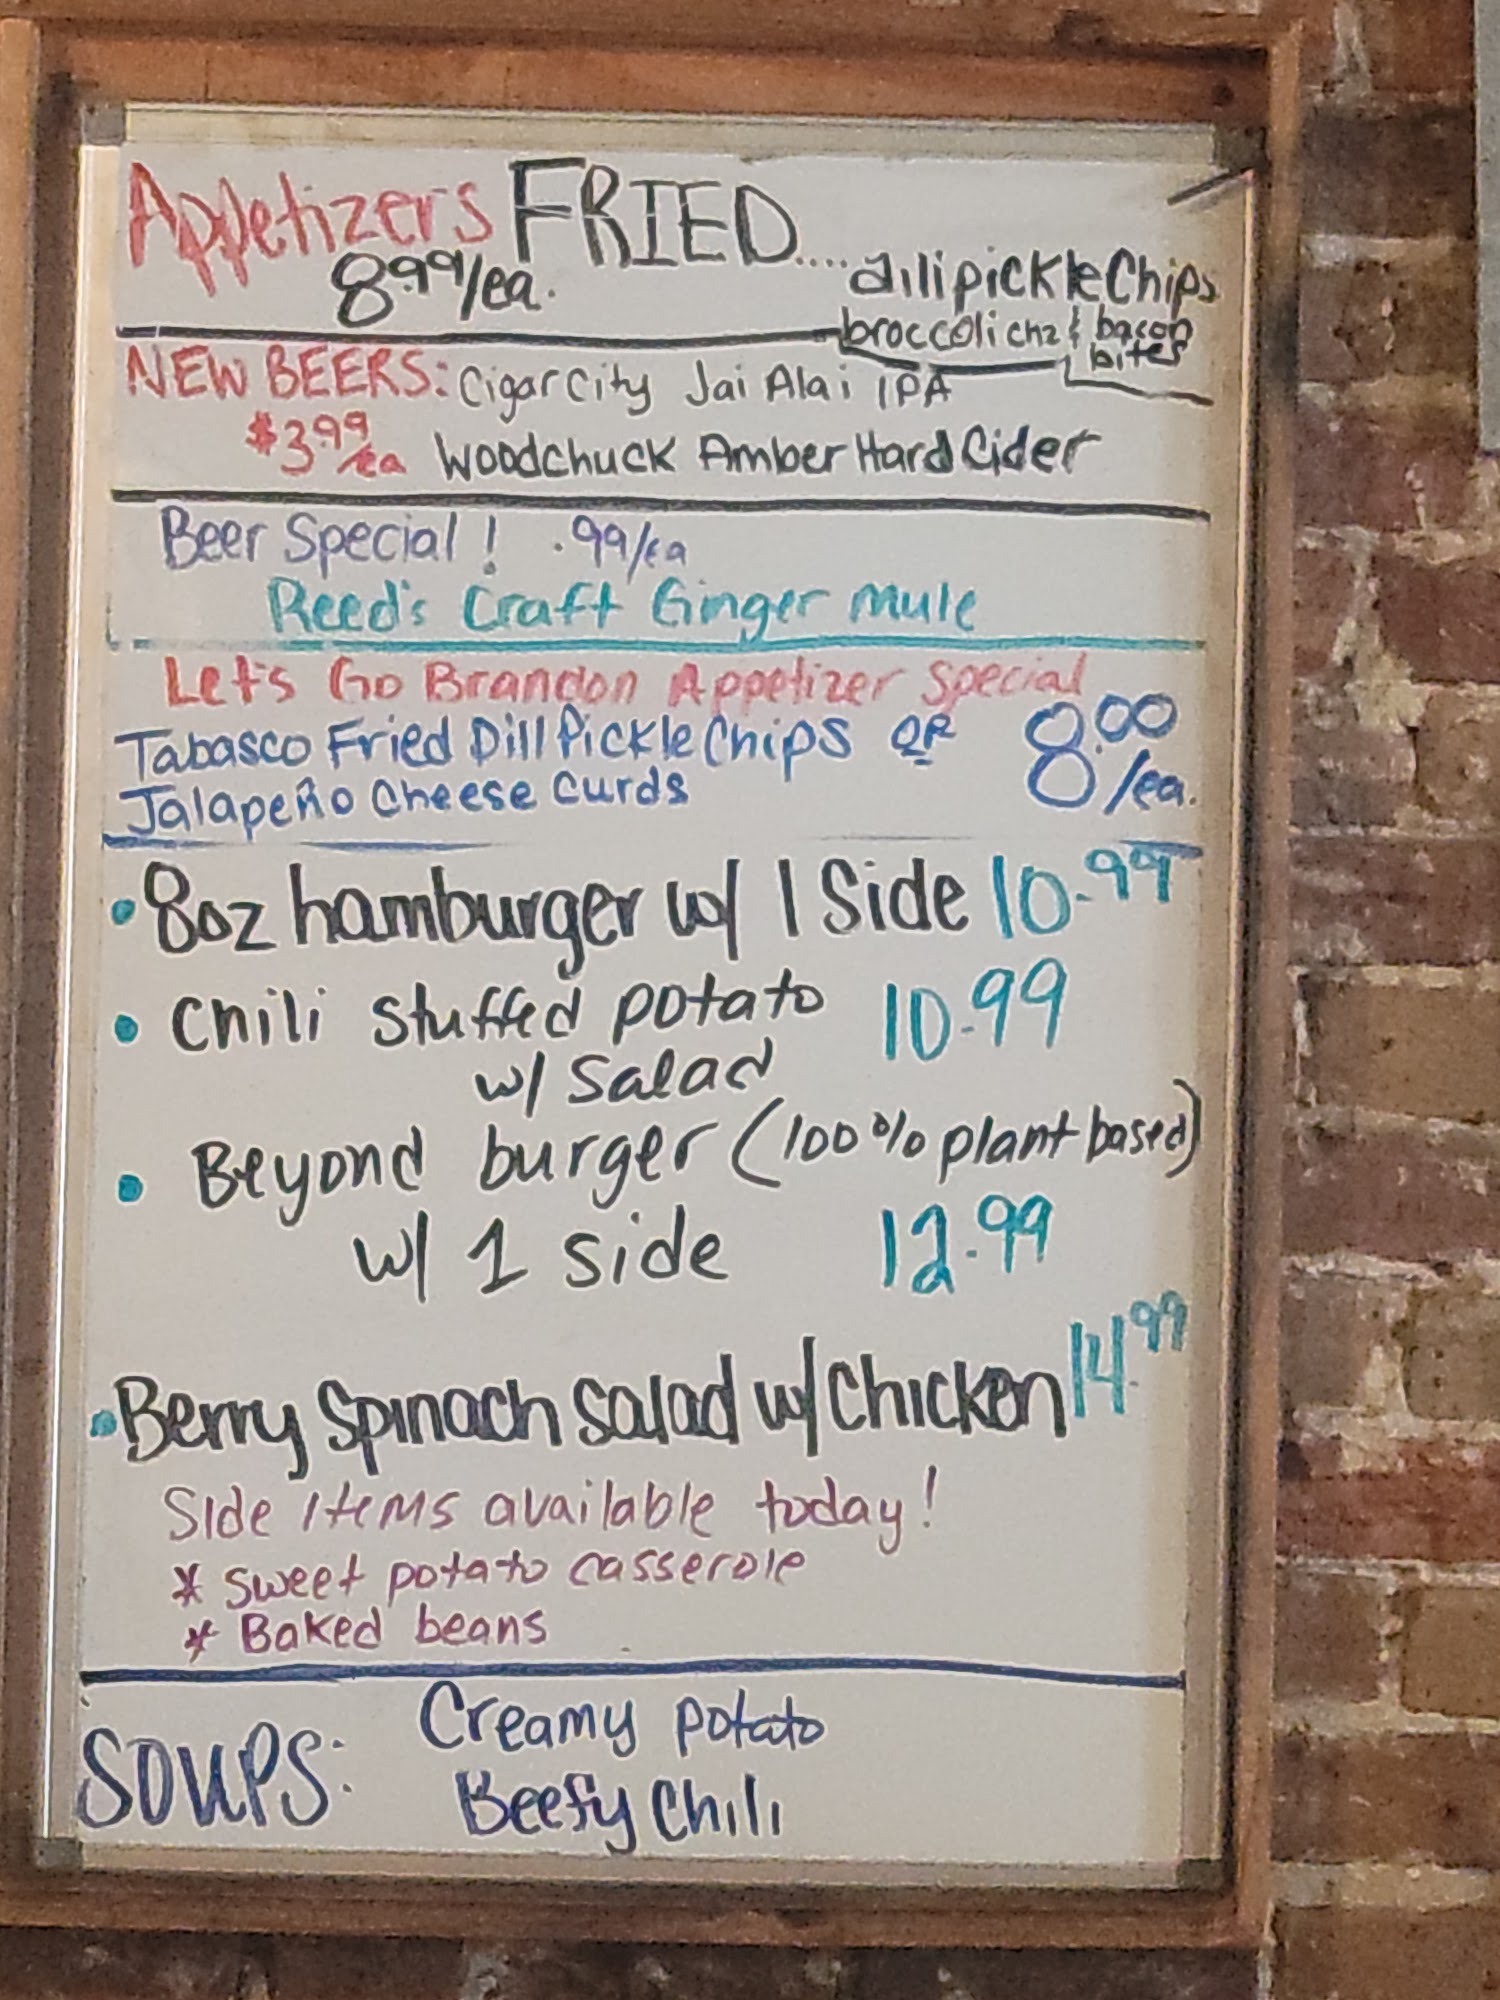 Appetizers FRIED....
8.99/ea. dill pickle Chips
broccoli chz & bacon
bites
NEW BEERS: Cigar City Jai Alai IPA
$3.99/ea Woodchuck Amber Hard Cider
Beer Special! .99/ea
Reed's Craft Ginger Mule
Let's Go Brandon Appetizer Special
Tabasco Fried Dill Pickle Chips OR 8.00
Jalapeño Cheese Curds /ea.
• 8oz hamburger w/ 1 Side 10.99
• Chili stuffed potato 10.99
w/ Salad
• Beyond burger (100% plant based)
w/ 1 side 12.99
• Berry Spinach Salad w/ Chicken 14.99
Side items available today!
* sweet potato casserole
* Baked beans
SOUPS: Creamy potato
Beefy Chili